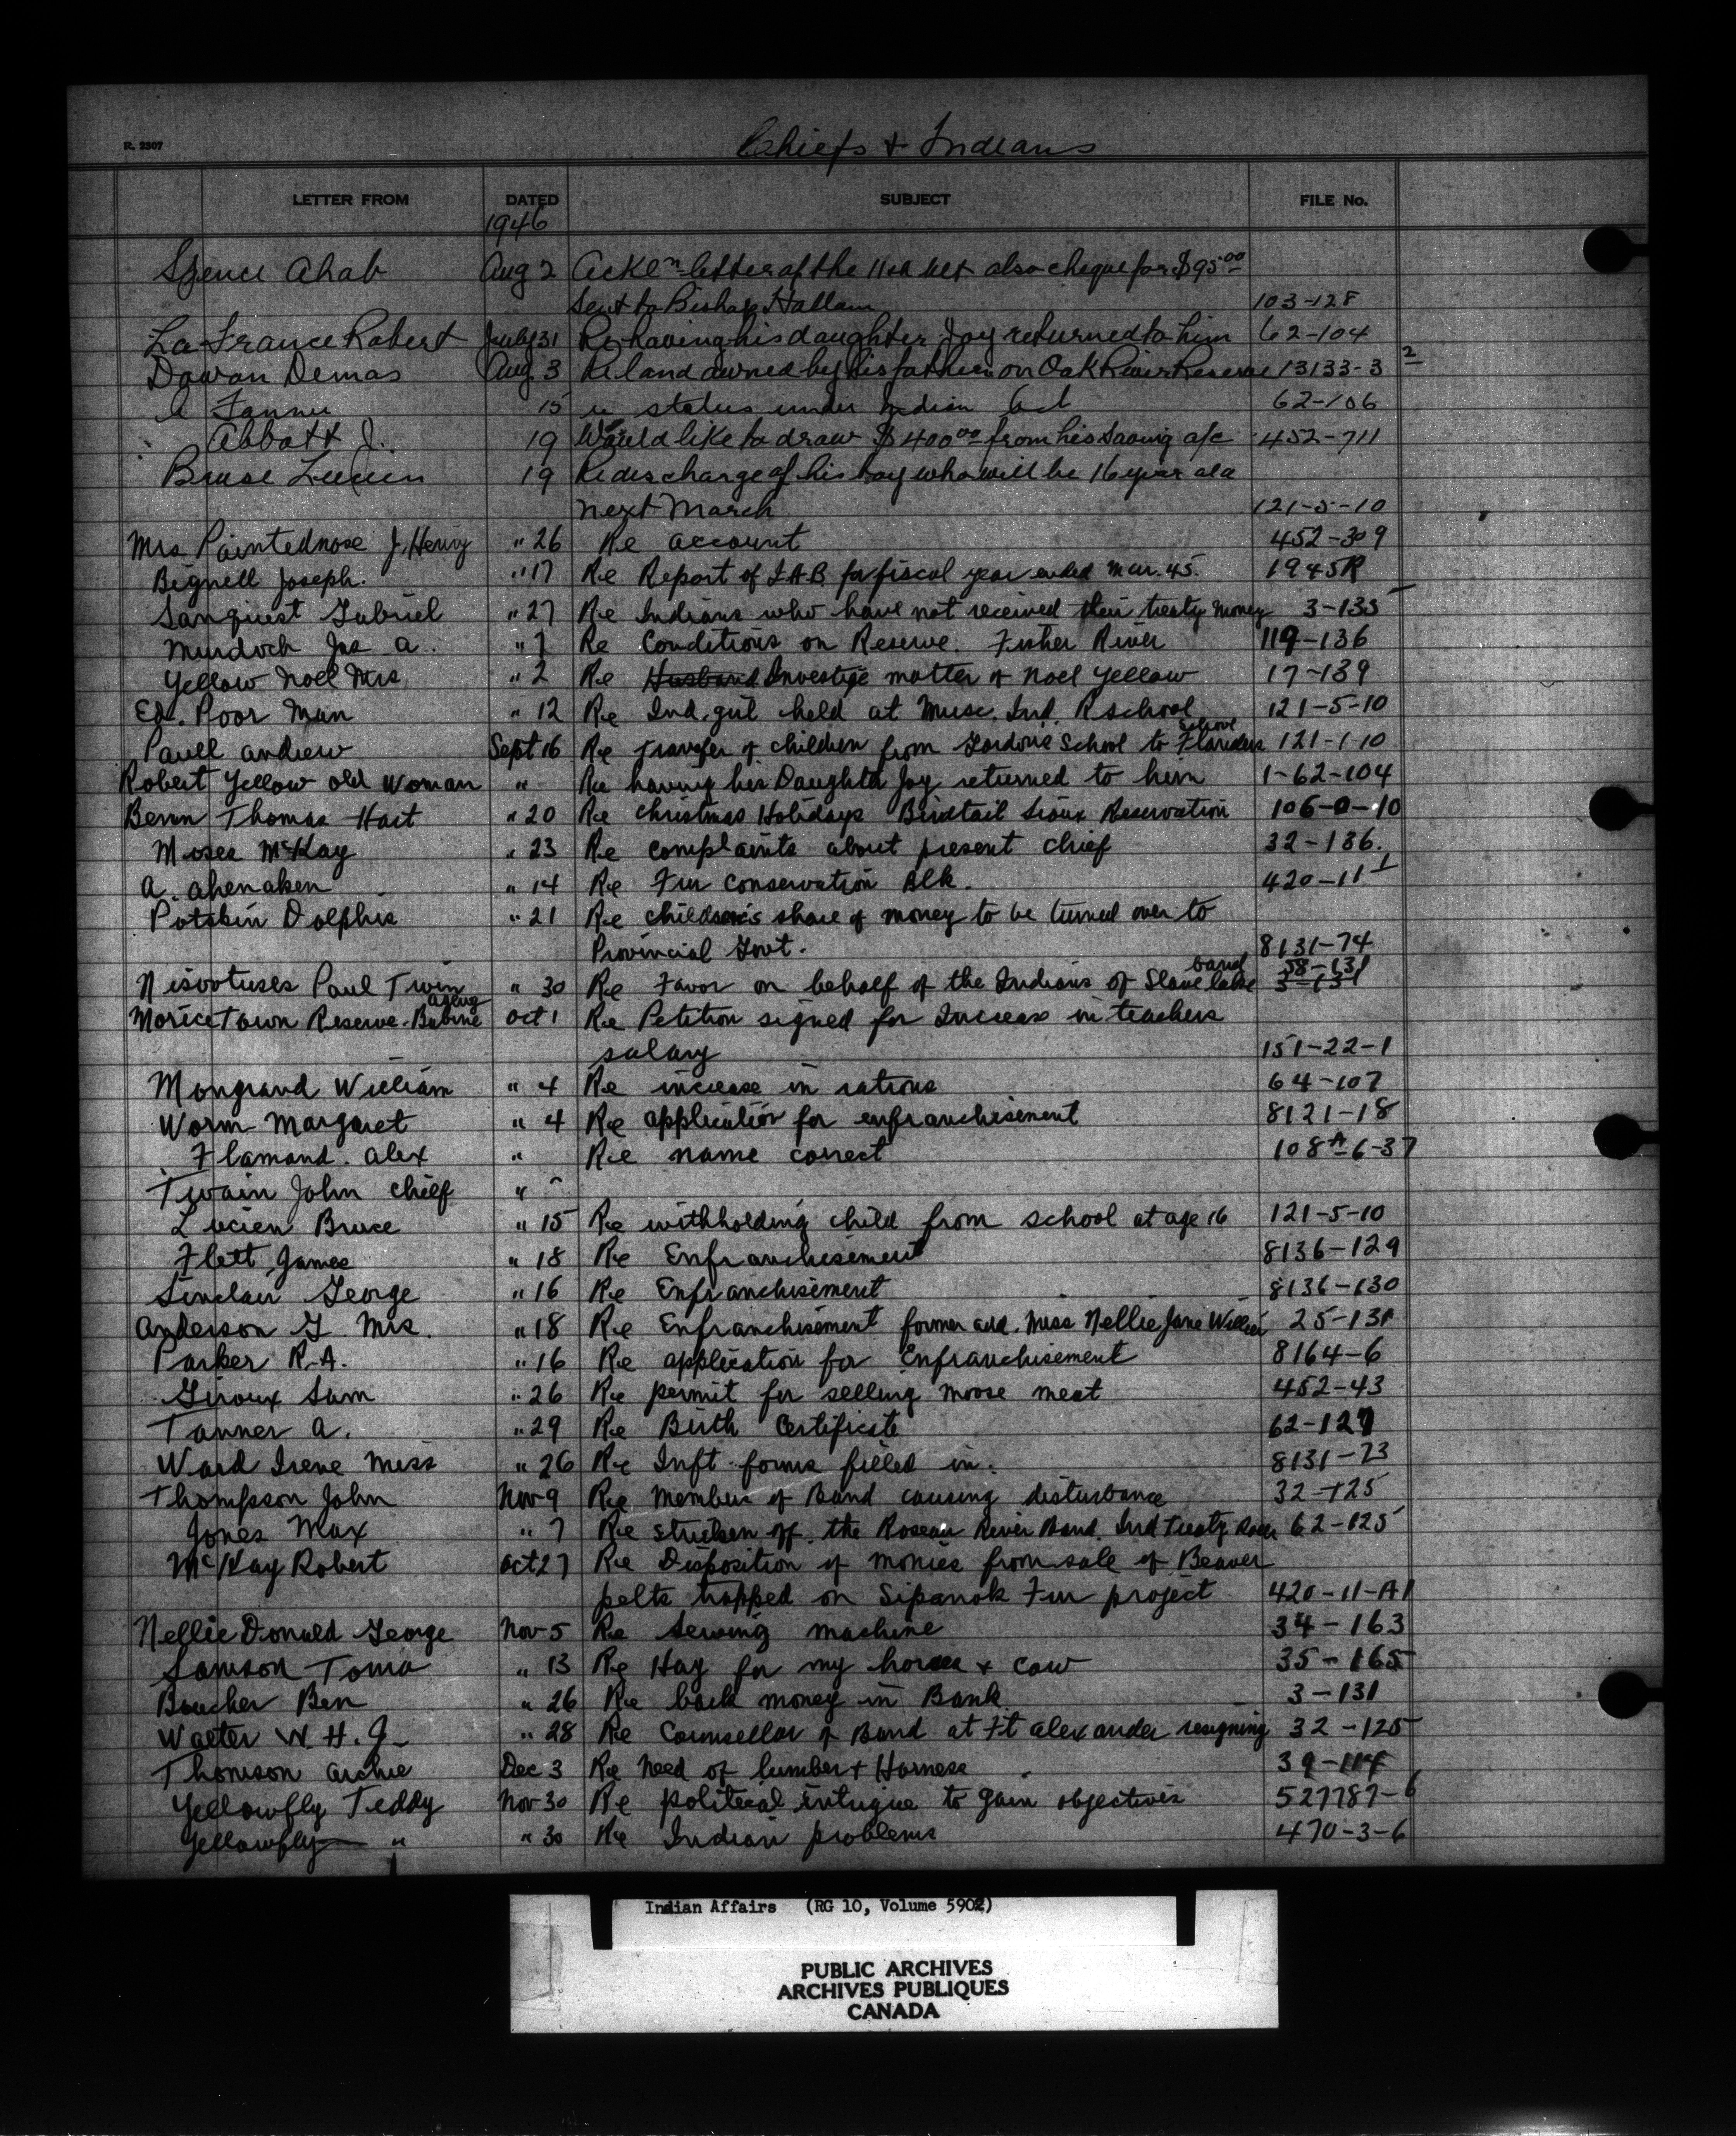 R. 2307
Chiefs + Indians
LETTER FROM DATED SUBJECT FILE No.
1946
Spence Ahab Aug 2 Ackl'n letter of the 11th ult also cheque for $95.00
sent to Bishop Hallam 103-128
La France Robert July 31 Re having his daughter Joy returned to him 62-104
Dowan Demas Aug. 3 Re land owned by his father on Oak River Reserve 13133-3 2
15 re status under Indian Act 62-106
Abbott J. 19 Would like to draw $400.00 from his Saving a/c 452-711
Bruse Lucien 19 Re discharge of his boy who will be 16 year old
next March 121-5-10
Mrs Paintednose J. Henry " 26 Re account 452-309
Bignell Joseph. " 17 Re Report of I.A.B. for fiscal year ended Mar. 45. 1945R
Sanquest Gabriel " 27 Re Indians who have not received their treaty money 3-135
Murdoch Jas A. " 7 Re Conditions on Reserve. Fisher River 119-136
Yellow Noel Mrs " 2 Re Husband Investige matter of Noel Yellow 17-139
Ed. Poor Man " 12 Re Ind. girl held at Musc. Ind. R school 121-5-10
school
Paull Andrew Sept 16 Re transfer of children from Gordons School to 121-1-10
Robert Yellow Old Woman " Re having his Daughter Joy returned to him 1-62-104
Benn Thomas Hart " 20 Re Christmas Holidays Birdtail Sioux Reservation 106-0-10
Moses McKay " 23 Re complaints about present chief 32-136.
A. Ahenaken " 14 Re Fur Conservation Blk. 420-11-1
Potskin Dolphis " 21 Re children's share of money to be turned over to
Provincial Govt. 8131-74
band 58-131
Nisootuses Paul Twin " 30 Re Favor on behalf of the Indians of Slave lake 3-131
Agency
Moricetown Reserve - Babine Oct 1 Re Petition signed for Increase in teachers
salary 151-22-1
Mongrand William " 4 Re increase in rations 64-107
Worm Margaret " 4 Re application for enfranchisement 8121-18
Flamand. Alex " Re name correct 108A-6-37
Twain John Chief " "
Lucien Bruce " 15 Re withholding child from school at age 16 121-5-10
Flett James " 18 Re Enfranchisement 8136-129
Sinclair George " 16 Re Enfranchisement 8136-130
Anderson G. Mrs. " 18 Re Enfranchisement former add. Miss Nellie Jane Willier 25-131
Parker R.A. " 16 Re application for Enfranchisement 8164-6
Giroux Sam " 26 Re permit for selling moose meat 452-43
Tanner A. " 29 Re Birth Certificate 62-127
Ward Irene Miss " 26 Re Inft. forms filled in. 8131-73
Thompson John Nov 9 Re Members of Band causing disturbance 32-125
Jones Max " 7 Re stricken off the Roseau River Band. Ind Treaty 62-125
McKay Robert Oct 27 Re Disposition of monies from sale of Beaver
pelts trapped on Sipanok Fur project 420-11-A1
Nellie Donald George Nov-5 Re Sewing machine 34-163
Samson Toma " 13 Re Hay for my horses + cow 35-165
Boucher Ben " 26 Re back money in Bank 3-131
Walter W.H.G. " 28 Re Counsellor of Band at Ft Alexander resigning 32-125
Thomson Archie Dec 3 Re need of lumber + Harness 39-114
Yellowfly Teddy Nov-30 Re political intrigue to gain objectives 527787-6
Yellowfly " " 30 Re Indian problems 470-3-6
Indian Affairs (RG 10, Volume 5902)
PUBLIC ARCHIVES
ARCHIVES PUBLIQUES
CANADA